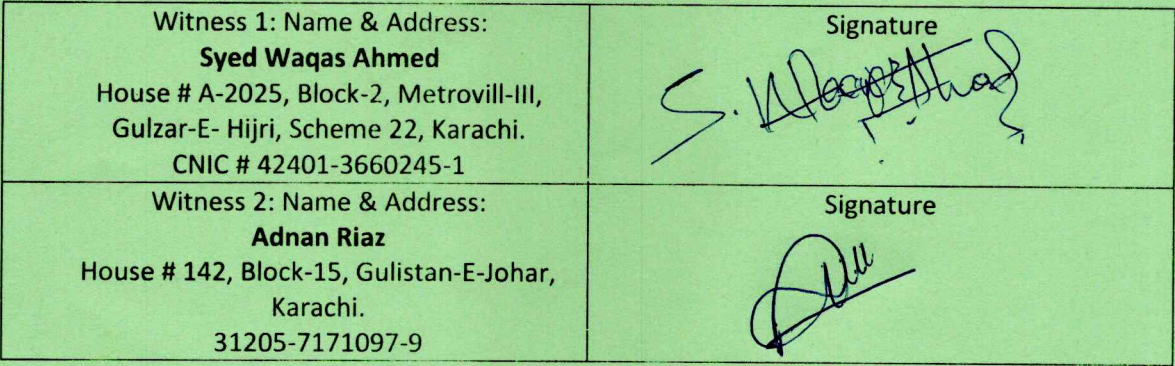 Witness 1: Name & Address:
Syed Waqas Ahmed
House # A-2025, Block-2, Metrovill-III,
Gulzar-E- Hijri, Scheme 22, Karachi.
CNIC # 42401-3660245-1
Signature
S. Waqas Ahmad
Witness 2: Name & Address:
Adnan Riaz
House # 142, Block-15, Gulistan-E-Johar,
Karachi.
31205-7171097-9
Signature